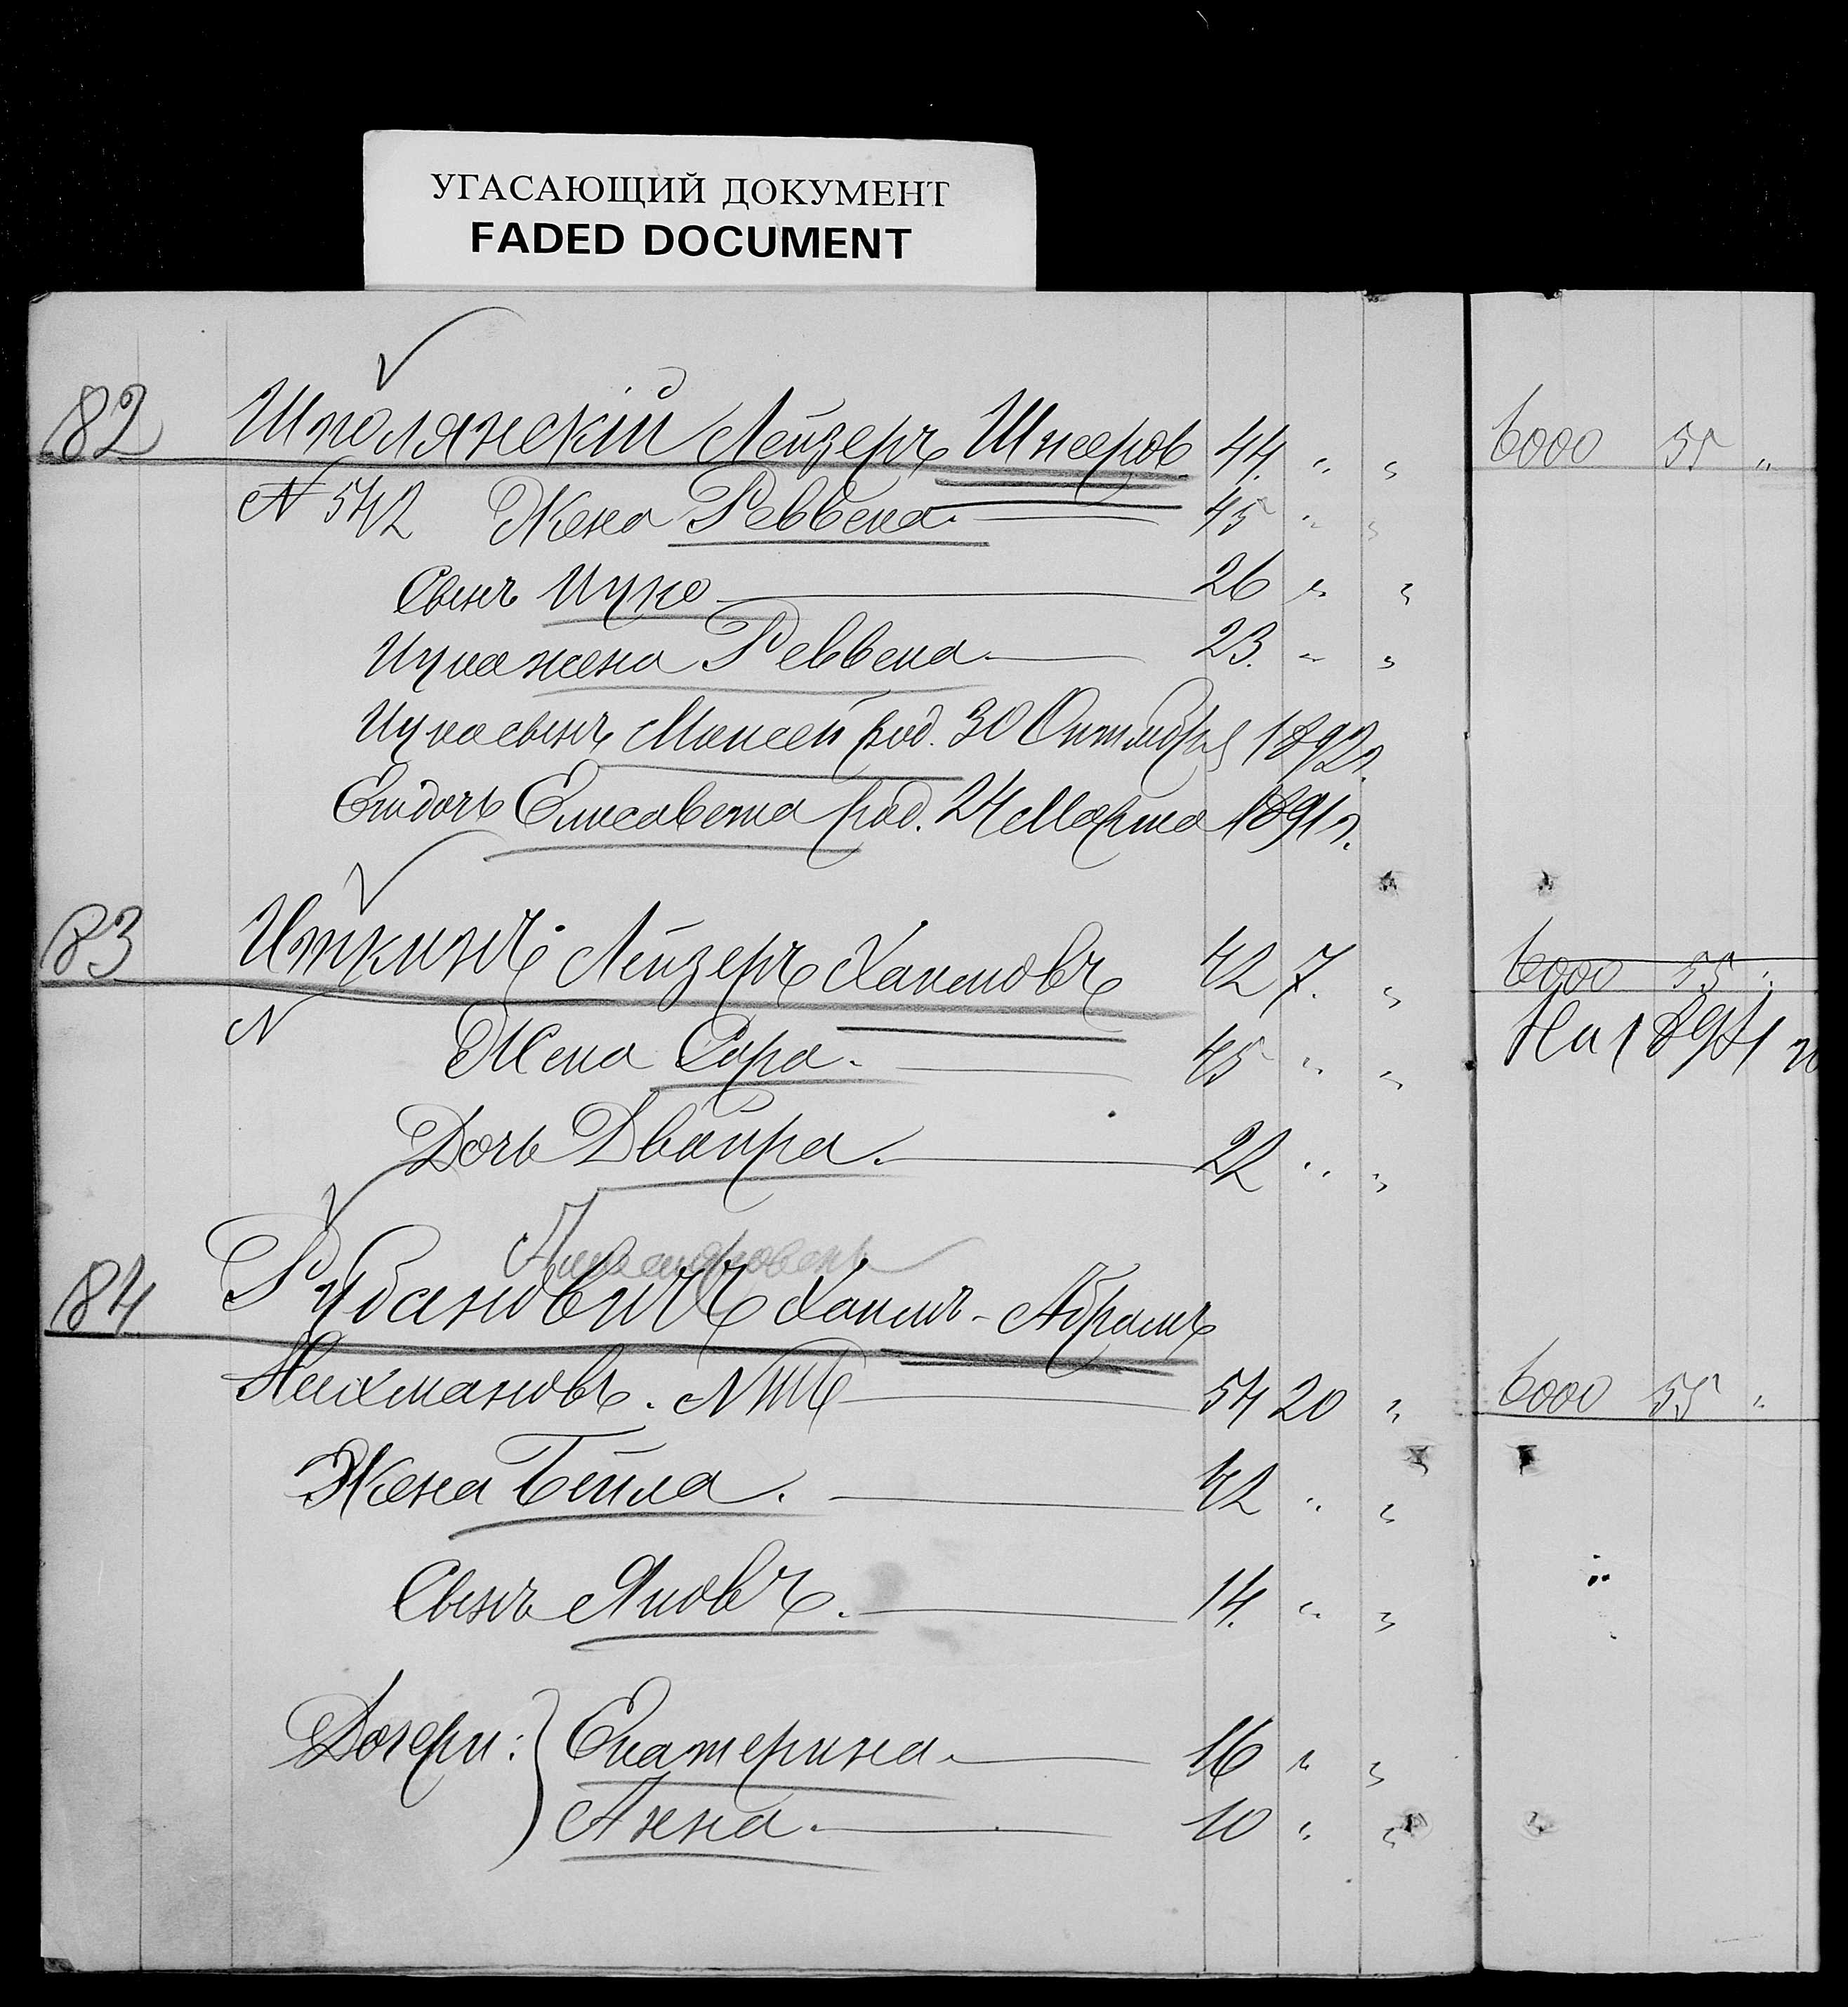 УГАСАЮЩИЙ ДОКУМЕНТ
FADED DOCUMENT
82 Шполянскій Лейзеръ Шнееров 44. " " 6000 55 "
N 542 Жена Реввека. 45 " "
Сынъ Ицко 26 " "
Ицка жена Реввека 23. " "
Ицка сынъ Моисей род. 30 Октября 1892 г.
Его дочь Елисавета род. 24 Марта 1891 г.
83 Иткинъ Лейзеръ Хаимовъ 42 7. " 6000 55 "
N Жена Сара. 45 " " На 1894 г
Дочь Двейра. 22 " "
84 Рубановичъ Хаимъ-Абрамъ
Нахмановъ. N 54 20 " 6000 55 "
Жена Бейла. 42 " "
Сынъ Яковъ. 14. " "
Дочери: Екатерина 16 " "
Анна. 10 " "